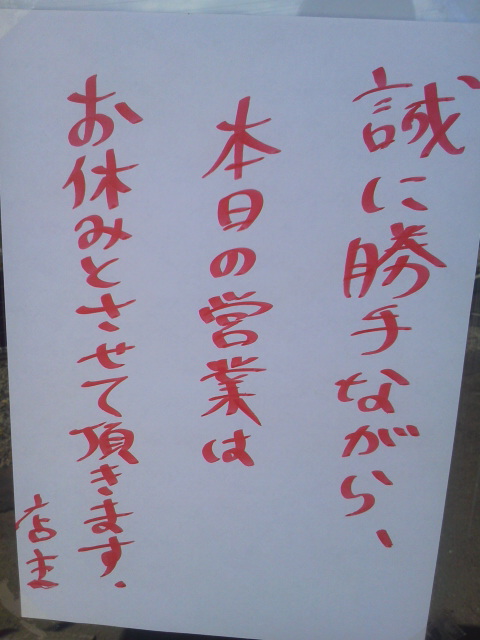 誠に勝手ながら、
本日の営業は
お休みとさせて頂きます.
店主